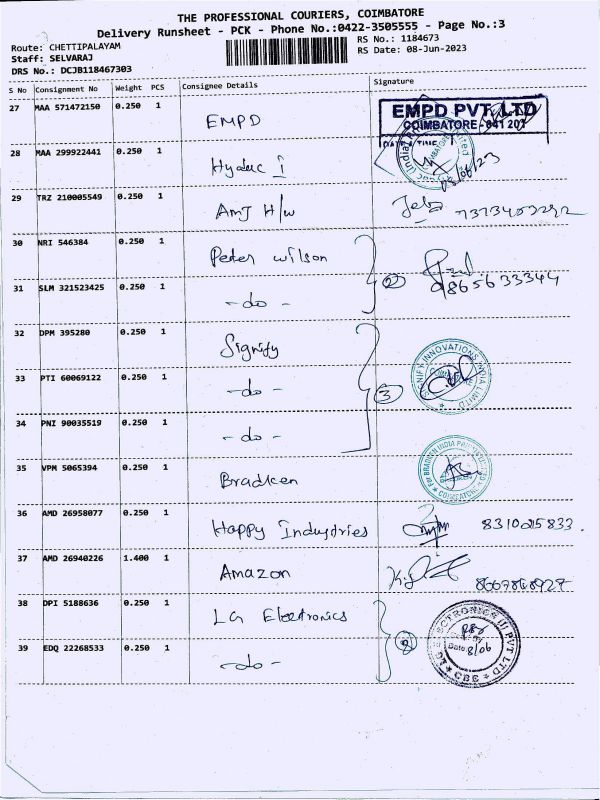 THE PROFESSIONAL COURIERS, COIMBATORE
Delivery Runsheet - PCK - Phone No.:0422-3505555 - Page No.:3
Route: CHETTIPALAYAM RS No.: 1184673
Staff: SELVARAJ RS Date: 08-Jun-2023
DRS No.: DCJB118467303
S No Consignment No Weight PCS Consignee Details Signature
27 MAA 571472150 0.250 1 EMPD
EMPD PVT. LTD
COIMBATORE - 641 201
DATE & TIME
28 MAA 299922441 0.250 1 Hydac I 08/06/23
29 TRZ 210005549 0.250 1 AMJ H/w
30 NRI 546384 0.250 1 Peter Wilson
31 SLM 321523425 0.250 1 - do - 2 9865633344
32 DPM 395280 0.250 1 Signify
SIGNIFY INNOVATIONS INDIA LIMITED
33 PTI 60069122 0.250 1 - do - 3
34 PNI 90035519 0.250 1 - do -
35 VPM 5065394 0.250 1 Bradken
For BRADKEN INDIA COIMBATORE
36 AMD 26958077 0.250 1 Happy Industries 8310215833.
37 AMD 26940226 1.400 1 Amazon
38 DPI 5188636 0.250 1 LG Electronics
LG ELECTRONICS (I) PVT LTD CBE
Date 8/06
39 EDQ 22268533 0.250 1 - do - 2